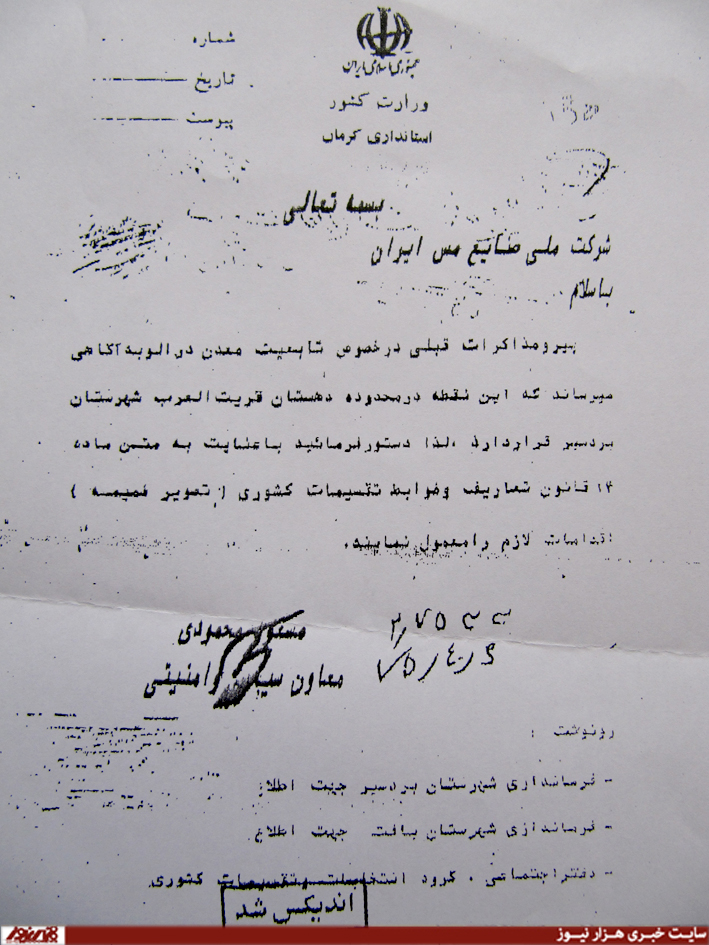 جمهوری اسلامی ایران
وزارت کشور
استانداری کرمان
شماره
تاریخ
پیوست
بسمه تعالی
شرکت ملی صنایع مس ایران
باسلام
پیرومذاکرات قبلی درخصوص تابعیت معدن درالوبه آگاهی
میرساند که این نقطه درمحدوده دهستان قریت العرب شهرستان
بردسیر قراردارد لذا دستورفرمائید باعنایت به متن ماده
۱۴ قانون تعاریف وضوابط تقسیمات کشوری ( تصویر ضمیمه )
اقدامات لازم رامعمول نمایند.
مسعود محمودی
معاون سیاسی وامنیتی
۷۵/۴/۶
رونوشت :
- فرمانداری شهرستان بردسیر جهت اطلاع
- فرمانداری شهرستان بافت جهت اطلاع
- دفتراجتماعی ، گروه انتخابات وتقسیمات کشوری
اندیکس شد
سایت خبری هزار نیوز
هزارنیوز